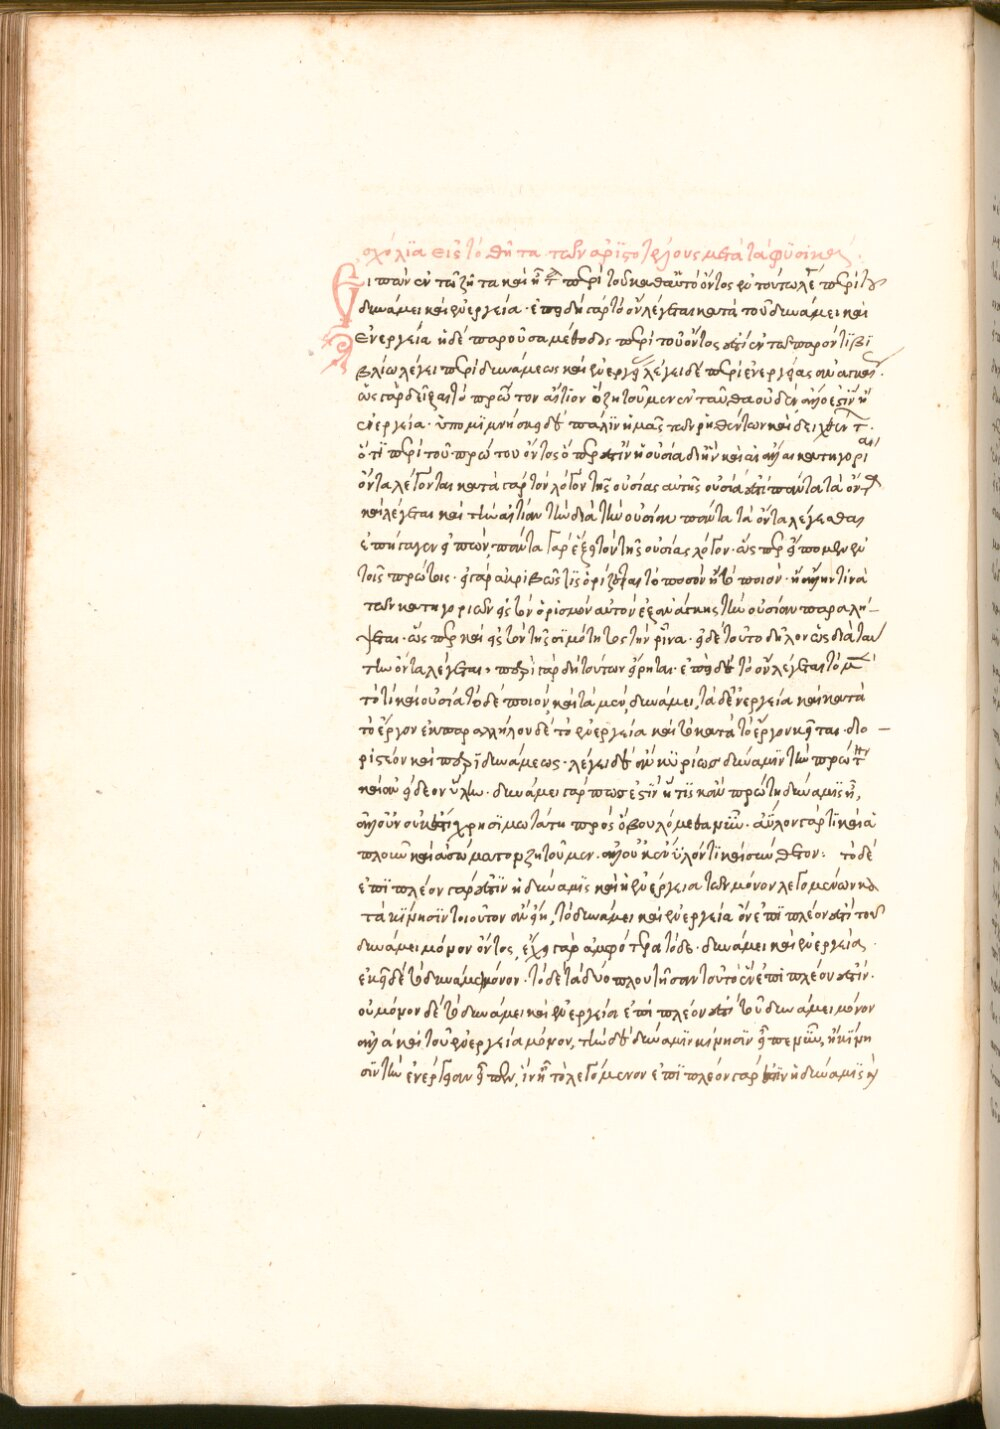 σχόλϊα εις τὸ θῆτα τῶν ἀρϊστοτέλους μετὰ τὰ φϋσικά
Εἰπὼν ἐν τῶ ζῆτα καὶ ῆτα περὶ τοῦ καθαὑτὸ ὄντος ἐν τούτω λέγει περὶ τοῦ
δυνάμει καὶ ἐνεργεία· ἐπειδὴ γὰρ τὸ ὂν λέγεται κατὰ τοῦ δυνάμει καὶ
ἐνεργεία ἡ δὲ παροῦσα μέθοδος περὶ τοῦ ὄντος ἐστὶ ἐν τῶ παρόντϊ βϊ
βλίω λέγει περὶ δυνάμεως καὶ ἐνεργείας λέγει δὲ περὶ ἐνεργείας
ὡς γὰρ δεῖξαι τὸ πρῶτον αἴτιον ὃ ζητοῦμεν ἐνταῦθα οὐδὲν ἄλλο ἐστὶν ἢ
ἐνέργεια· ὑπομϊμνήσκει δὲ πάλϊν ἡμᾶς τῶν ῥηθέντων καὶ δειχθέντων·
ὅτϊ περὶ τοῦ πρώτου ὄντος ὅπερ ἐστὶν ἡ οὐσία δι ἣν καὶ αἱ ἄλλαι κατηγορίαι
ὄντα λέγονται κατὰ γὰρ τὸν λόγον τῆς οὐσίας αὐτῆς οὐσία ἐστὶ πάντα τὰ ὄντα
καὶ λέγεται καὶ τὴν αἰτίαν τὴν διὰ τὴν οὐσίαν πάντα τὰ ὄντα λέγεσθαι
ἐπήγαγεν εἰπών· πάντα γὰρ ἕξει τὸν τῆς οὐσίας λόγον· ὥσπερ εἴπομεν ἐν
τοῖς πρώτοις· εἰ γὰρ ἀκριβῶς τὶς ὁρίζεται τὸ ποσὸν ἢ τὸ ποιὸν· ἢ ἄλλην τινὰ
τῶν κατηγοριῶν εἰς τὸν ὁρισμὸν αὐτὸν ἐξ ανάγκης τὴν οὐσίαν παραλή-
ψεται· ὥσπερ καὶ εἰς τὸν τῆς σϊμότητος τὴν ῥῖνα· εἰ δὲ τοῦτο δῆλον ὡς διὰ ταύ
την ὄντα λέγεται, περὶ γὰρ δὴ τούτων εἴρηται· ἐπεὶ δὲ τὸ ὂν λέγεται τὸ μὲν
τὸ τὶ καὶ οὐσία τὸ δὲ ποιόν, καὶ τὰ μὲν, δυνάμει, τὰ δὲ ἐνεργεία καὶ κατὰ
τὸ ἔργον ἐκ παραλλήλου δὲ τὸ ἐνεργεία καὶ τὸ κατὰ τὸ ἔργον κεῖται· διο-
ρίστέον καὶ περὶ δυνάμεως· λέγει δὲ οὐ κϋρίως δύναμϊν τὴν πρώτην
καὶ ἀνείδεον ὕλην. δυνάμει γάρ πως ἐστϊν ἥτϊς καὶ πρώτη δύναμϊς εἴη,
ἀλλ οὖν οὐκ ἔστι χρησϊμωτάτη πρὸς ὃ βουλόμεθα νῦν. ἄϋλον γάρ τι καὶ ἁ
πλοῦν καὶ ἀσώματον ζητοῦμεν. ἀλλ οὐκ ἔνϋλόν τϊ καὶ σύνθετον: τὸ δὲ
ἐπϊ πλέον γὰρ ἐστὶν ἡ δύναμϊς καὶ ἡ ἐνέργεια τῶν μόνον λεγομένων κα
τὰ κίνησϊν τοιοῦτον ἂν εἴη, τὸ δυνάμει καὶ ἐνεργεία ὂν ἐπϊ πλέον ἐστὶ τοῦ
δυνάμει μόνον ὄντος, ἔχει γὰρ ἀμφότερα τόδε· δυνάμει καὶ ἐνεργεία·
ἐκεῖ δὲ τὸ δυνάμει μόνον. τὸ δὲ τὰ δύο πλουτῆσαν τοῦτο ἐπὶ πλέον ἐστὶν.
οὐ μόνον δὲ τὸ δυνάμει καὶ ἐνεργεία ἐπὶ πλέον ἐστὶ τοῦ δυνάμει μόνον
ἀλλὰ καὶ τοῦ ἐνεργεία μόνον, τὴν δὲ δύναμϊν κίνησϊν εἴπεν νῦν, ἢ κίνη
σϊν τὴν ἐνέργειαν εἶπεν, ἵν ἦ τὸ λεγόμενον ἐπϊ πλέον γάρ ἐστϊν ἡ δύναμϊς ἡ